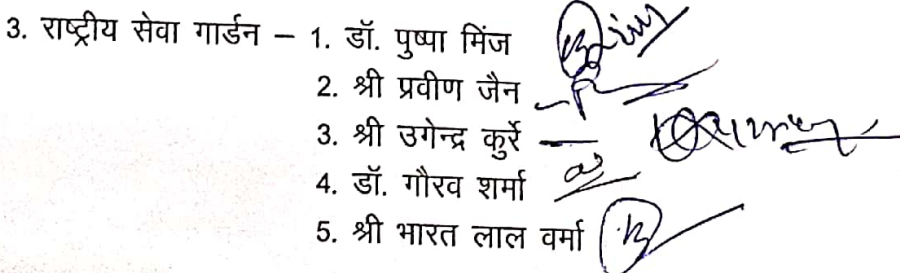 3. राष्ट्रीय सेवा गार्डन – 1. डॉ. पुष्पा मिंज
2. श्री प्रवीण जैन
3. श्री उगेन्द्र कुर्रे
4. डॉ. गौरव शर्मा
5. श्री भारत लाल वर्मा